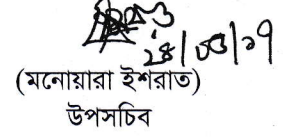 ২৪/০৩/১৭
(মনোয়ারা ইশরাত)
উপসচিব